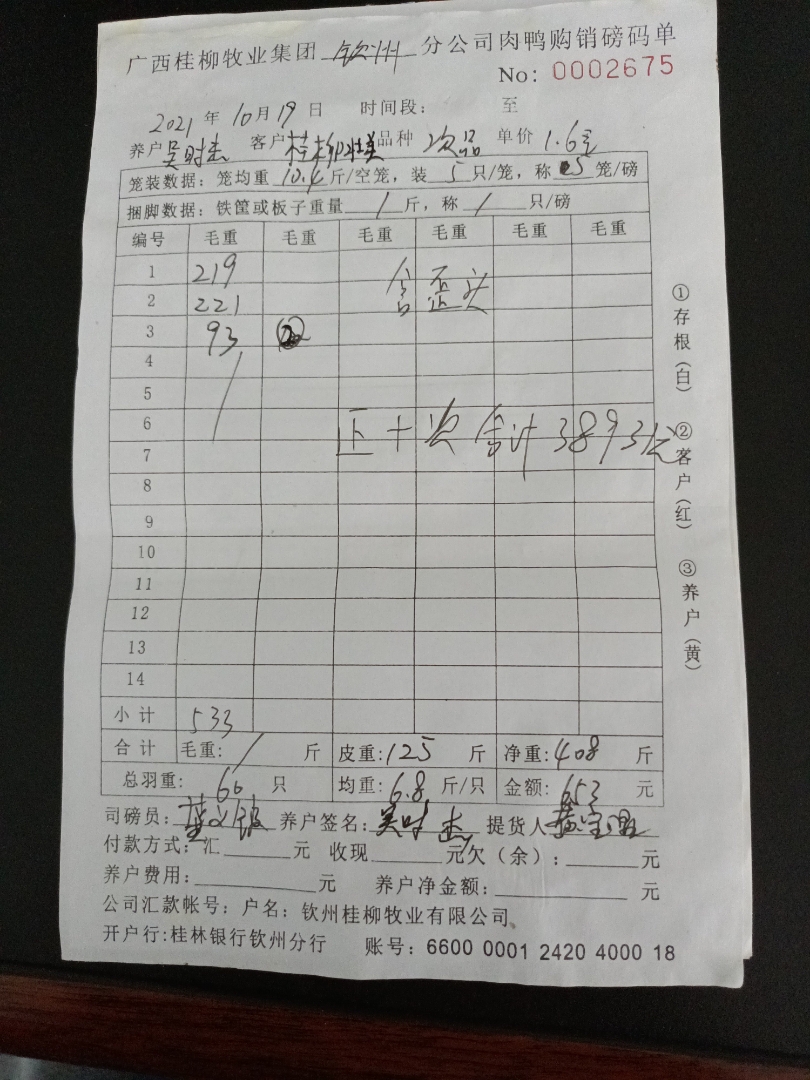 广西桂柳牧业集团 钦州 分公司肉鸭购销磅码单
No: 0002675
2021 年 10 月 19 日 时间段: 至
养户 吴时杰 客户 桂柳 品种 次品 单价 1.6元
笼装数据: 笼均重 10.4 斤/空笼, 装 5 只/笼, 称 5 笼/磅
捆脚数据: 铁筐或板子重量 / 斤, 称 / 只/磅
编号 毛重 毛重 毛重 毛重 毛重 毛重
1 219
2 221 含歪头
3 93
4
5
6 正+次合计3893元
7
8
9
10
11
12
13
14
小计 533
合计 毛重: / 斤 皮重: 125 斤 净重: 408 斤
总羽重: 60 只 均重: 6.8 斤/只 金额: 653 元
司磅员: 养户签名: 吴时杰 提货人
付款方式: 汇 元 收现 元欠(余): 元
养户费用: 元 养户净金额: 元
公司汇款帐号: 户名: 钦州桂柳牧业有限公司、
开户行:桂林银行钦州分行 账号: 6600 0001 2420 4000 18
①存根(白) ②客户(红) ③养户(黄)